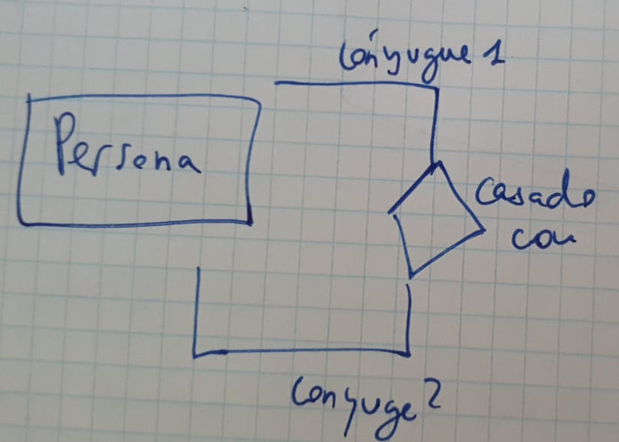 Cónyugue 1
Persona
casado
con
Conyuge 2